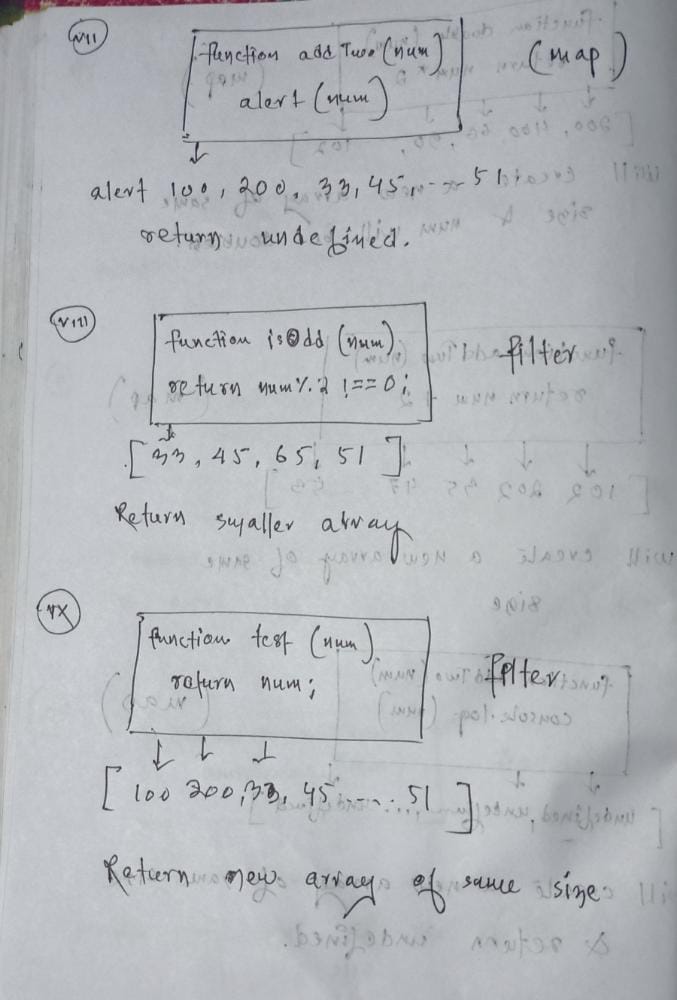 VII
function addTwo (num) (map)
alert (num)
alert 100, 200, 33, 45, --- 51
return undefined.
VIII
function isOdd (num) filter
return num % 2 !== 0;
[33, 45, 65, 51]
Return smaller array
function test (num)
return num; filter
[100 200, 33, 45 ---- 51]
Return new array of same size